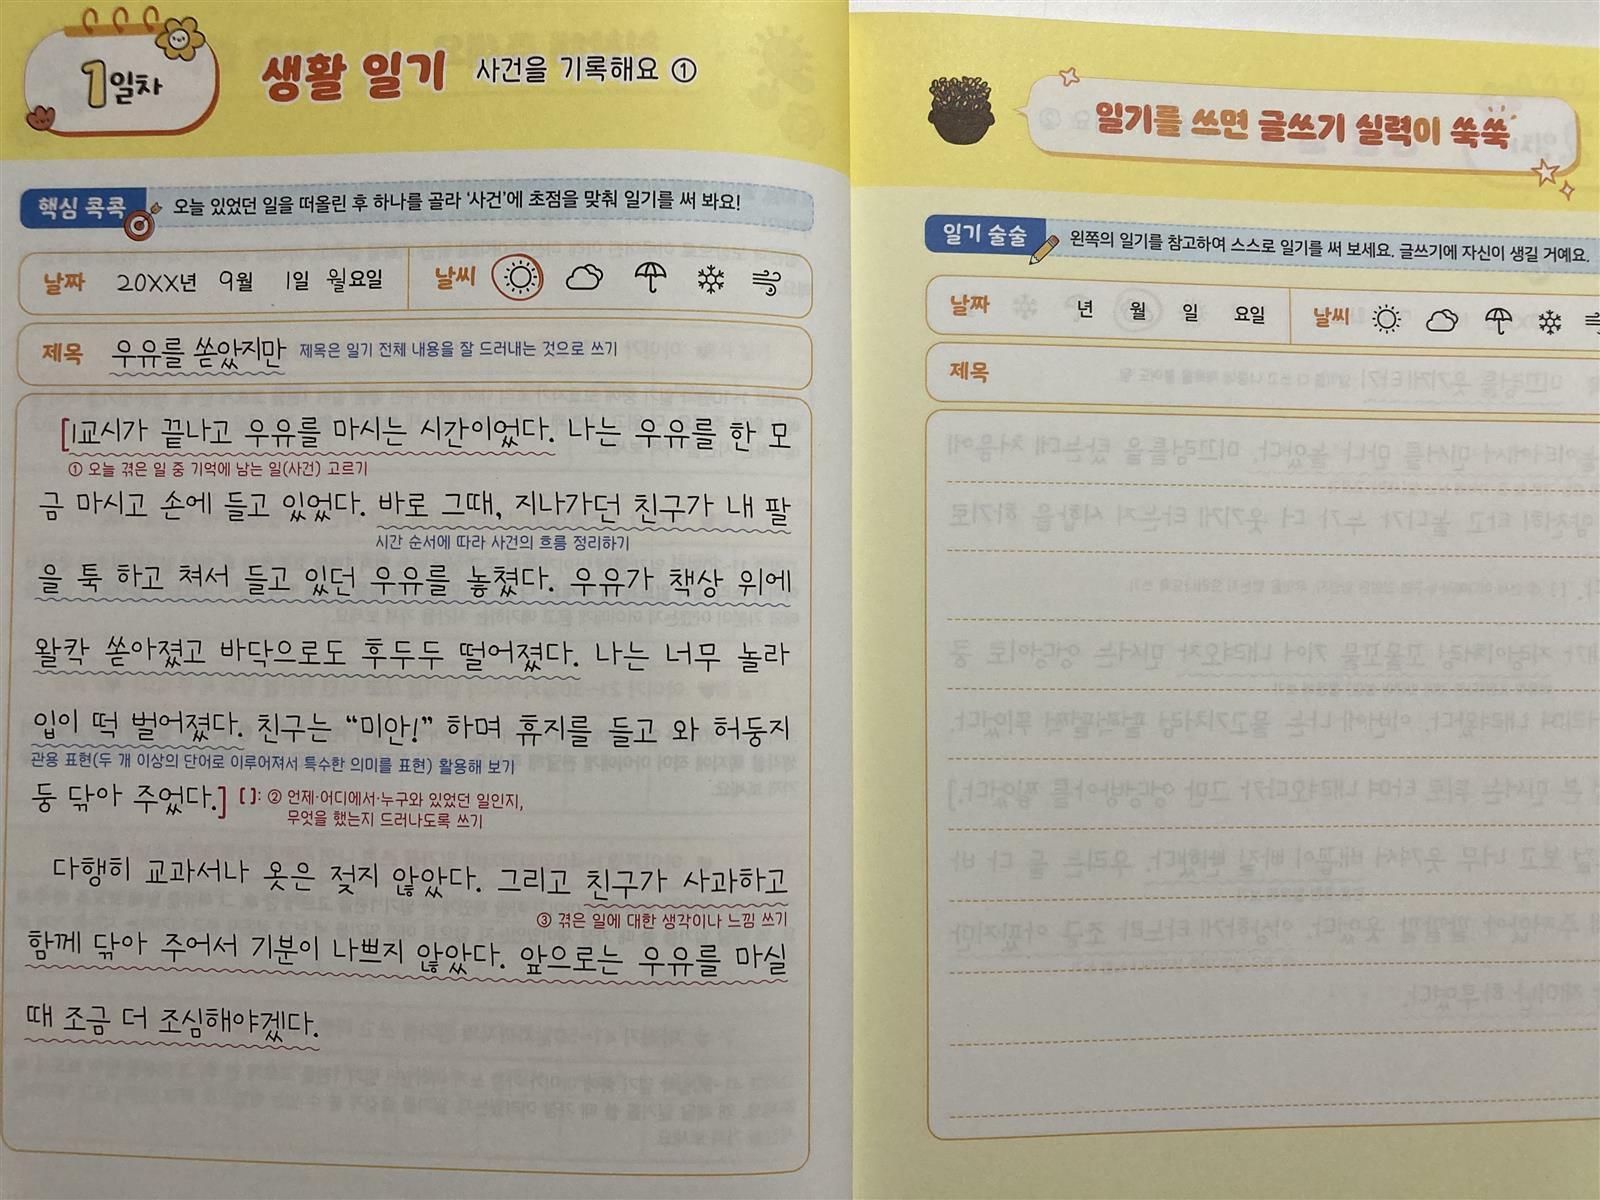 1일차
생활 일기 사건을 기록해요 ①
핵심 콕콕 오늘 있었던 일을 떠올린 후 하나를 골라 ‘사건’에 초점을 맞춰 일기를 써 봐요!
날짜 20XX년 9월 1일 월요일 날씨
제목 우유를 쏟았지만 제목은 일기 전체 내용을 잘 드러내는 것으로 쓰기
[1교시가 끝나고 우유를 마시는 시간이었다. 나는 우유를 한 모
① 오늘 겪은 일 중 기억에 남는 일(사건) 고르기
금 마시고 손에 들고 있었다. 바로 그때, 지나가던 친구가 내 팔
시간 순서에 따라 사건의 흐름 정리하기
을 툭 하고 쳐서 들고 있던 우유를 놓쳤다. 우유가 책상 위에
왈칵 쏟아졌고 바닥으로도 후두두 떨어졌다. 나는 너무 놀라
입이 떡 벌어졌다. 친구는 “미안!” 하며 휴지를 들고 와 허둥지
관용 표현(두 개 이상의 단어로 이루어져서 특수한 의미를 표현) 활용해 보기
둥 닦아 주었다.] [ ]: ② 언제·어디에서·누구와 있었던 일인지,
무엇을 했는지 드러나도록 쓰기
다행히 교과서나 옷은 젖지 않았다. 그리고 친구가 사과하고
③ 겪은 일에 대한 생각이나 느낌 쓰기
함께 닦아 주어서 기분이 나쁘지 않았다. 앞으로는 우유를 마실
때 조금 더 조심해야겠다.
일기를 쓰면 글쓰기 실력이 쑥쑥
일기 술술 왼쪽의 일기를 참고하여 스스로 일기를 써 보세요. 글쓰기에 자신이 생길 거예요.
날짜 년 월 일 요일 날씨
제목